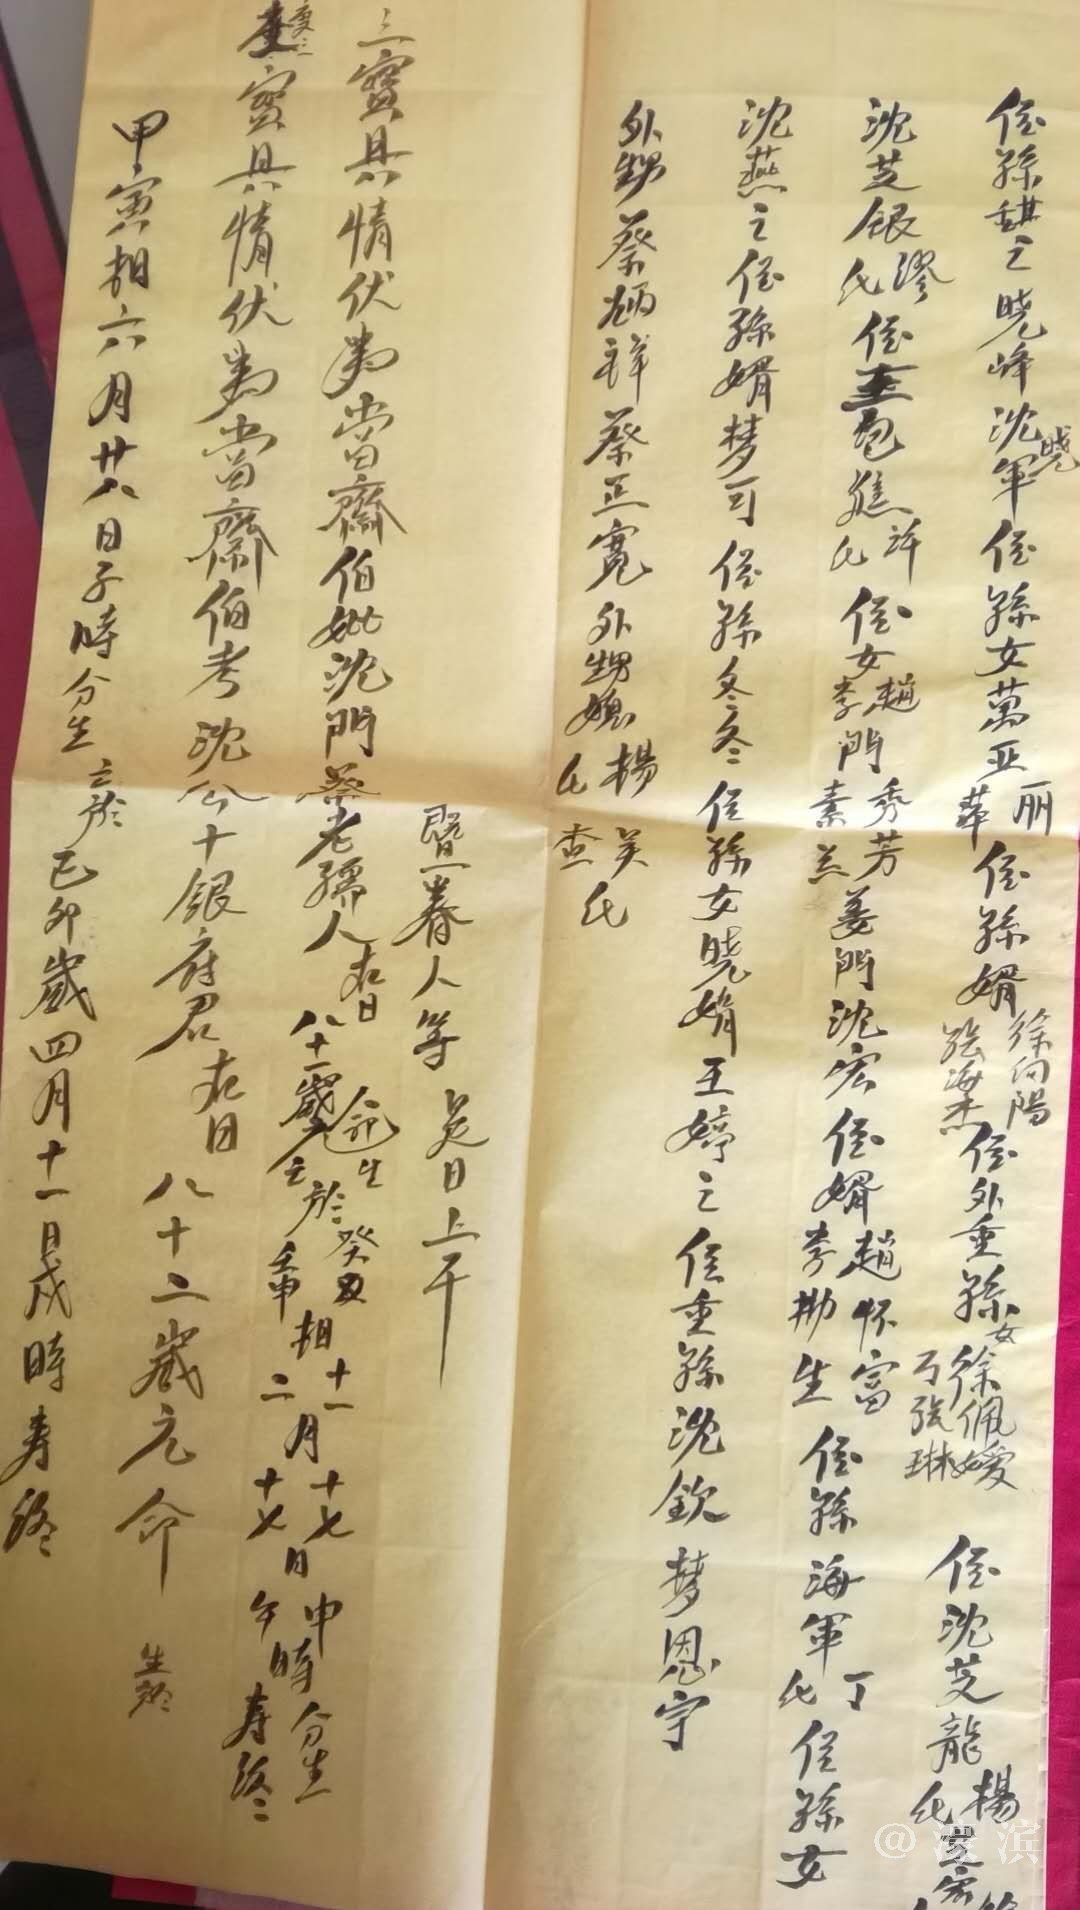 侄孫 之 曉峰 沈曉軍 侄孫女萬亚丽萍 侄孫婿徐向陽張海杰 侄外重孫女徐佩嫒丁張琳 侄沈芝龍楊氏
沈芝銀繆氏 侄 包 許氏 侄女趙門秀芳李門素兰姜門沈宏 侄婿趙怀富李勤生 侄孫海軍丁氏 侄孫女
沈燕之 侄孫婿梦可 侄孫冬冬 侄孫女曉娟王婷之 侄重孫沈欽 梦恩宇
外甥蔡炳祥蔡正寬 外甥媳楊氏吴氏查氏
暨眷人等 是日上干
三寶具情伏為當齋伯妣沈門蔡老孺人在日八十一歲 命生於癸丑相十一月十七日申時分生 亡於 二月十七日午時寿終
寶具情伏為當齋伯考沈公十銀府君在日八十二歲元命 生於
甲寅相六月廿八日子時分生 亡於己卯歲四月十一日戌時寿終
@ 滨